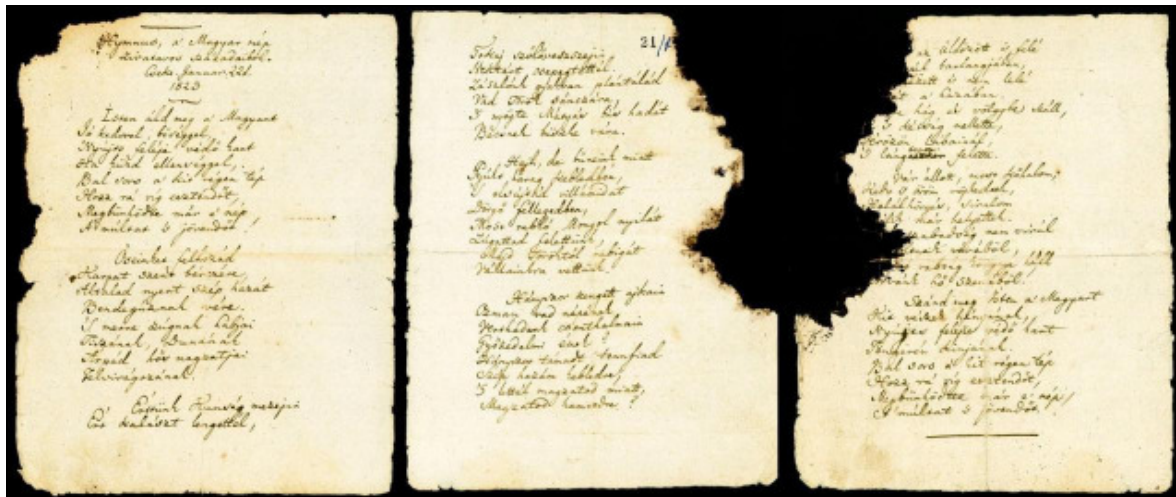 Hymnus, a' Magyar nép
zivataros századaiból.
Cseke. Januar. 22d.
1823
Isten áldd meg a' Magyart
Jó kedvvel, bőséggel,
Nyújts feléje védő kart
Ha küzd ellenséggel,
Bal sors a' kit régen tép
Hozz rá víg esztendőt,
Megbünhödte már e' nép
A' múltat 's jövendőt!
Őseinket felhozád
Kárpát szent bérczére,
Általad nyert szép hazát
Bendegúznak vére.
'S merre zúgnak habjai
Tiszának, Dunának
Árpád hős magzatjai
Felvirágozának.
Értünk Kunság mezejin
Ért kalászt lengettél,
21/
Tokaj szőlővesszejin
Nektárt csepegtettél.
Zászlónk gyakran plántálád
Vad török sánczára,
'S nyögte Mátyás bús hadát
Bécsnek büszke vára.
Hajh, de bűneink miatt
Gyúlt harag kebledben,
'S elsújtád villámidat
Dörgő fellegedben,
Most rabló Mongol nyilát
Zúgattad felettünk,
Majd töröktől rabigát
Vállainkra vettünk.
Hányszor zengett ajkain
Ozman vad népének
Vert hadunk csonthalmain
Győzedelmi ének!
Hányszor támadt tenfiad
Szép hazám kebledre,
'S lettél magzatod miatt
Magzatod hamvedre?
az üldözött 's felé
barlangjában,
nem lelé
a' hazában.
hág és völgybe száll,
nellette,
Vérözön lábainál,
'S lángtenger felette.
Vár állott, most kőhalom,
Kedv 's öröm röpkedtek,
Halálhörgés, siralom
már helyettek.
nem virúl
véréből,
rabság könnye hull
hő szeméből.
Szánd meg Isten a' Magyart
Kit vészek hányának,
Nyújts feléje védő kart
Tengerén kínjának.
Bal sors a' kit régen tép
Hozz rá víg esztendőt,
Megbünhödte már e' nép
A' múltat 's jövendőt.